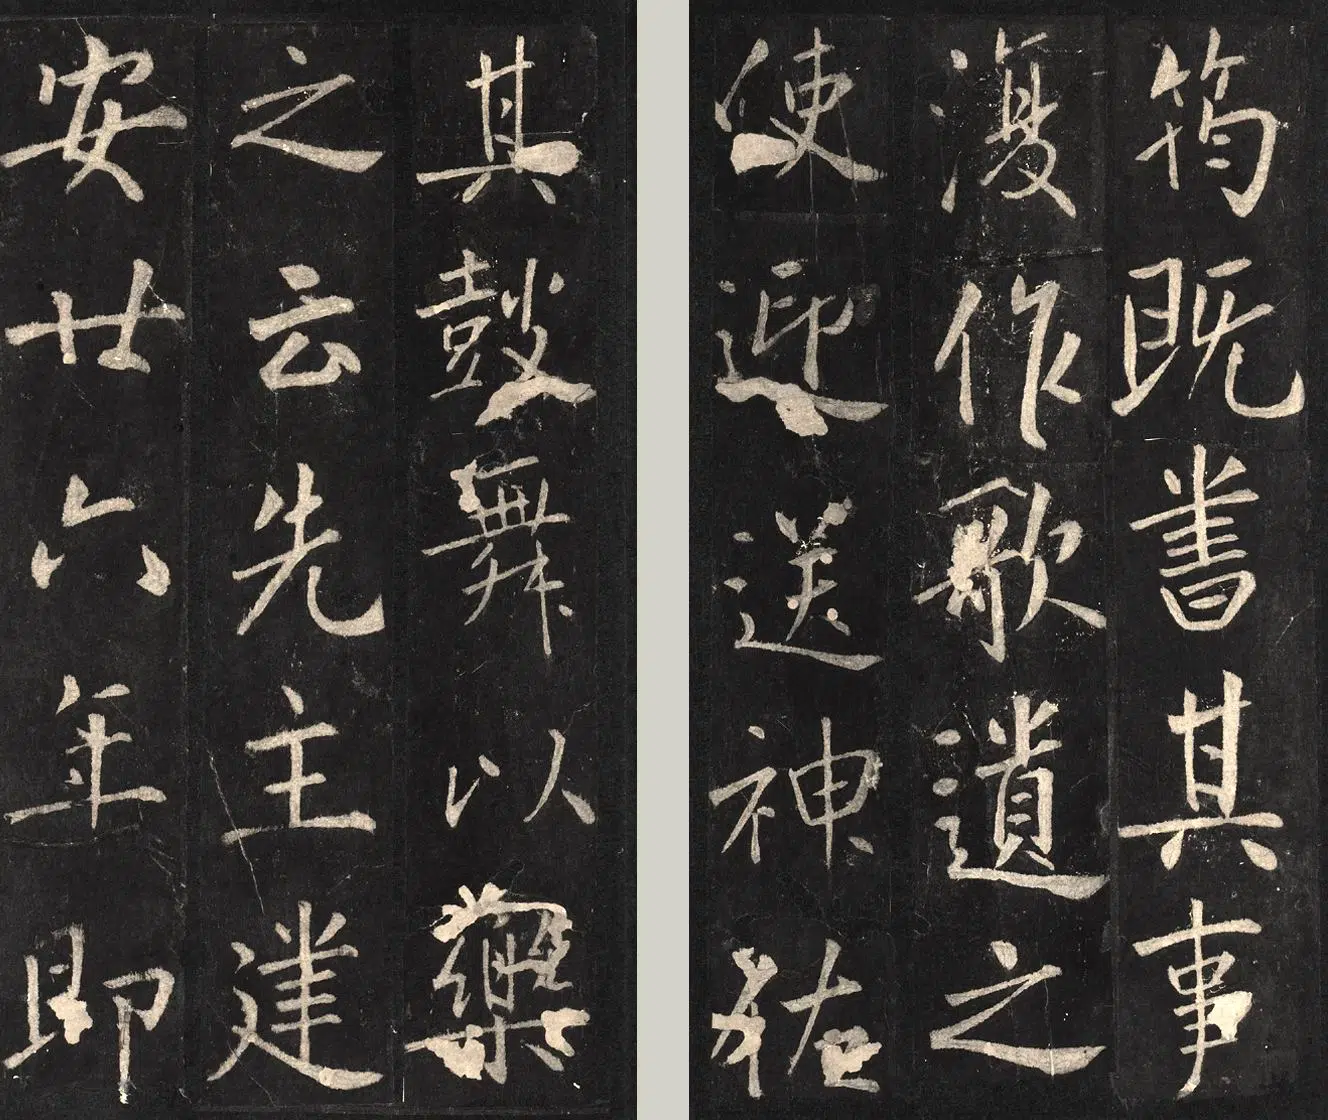 筠既書其事
復作歌遺之
使迎送神祐
其鼓舞以樂
之云先主建
安廿六年即